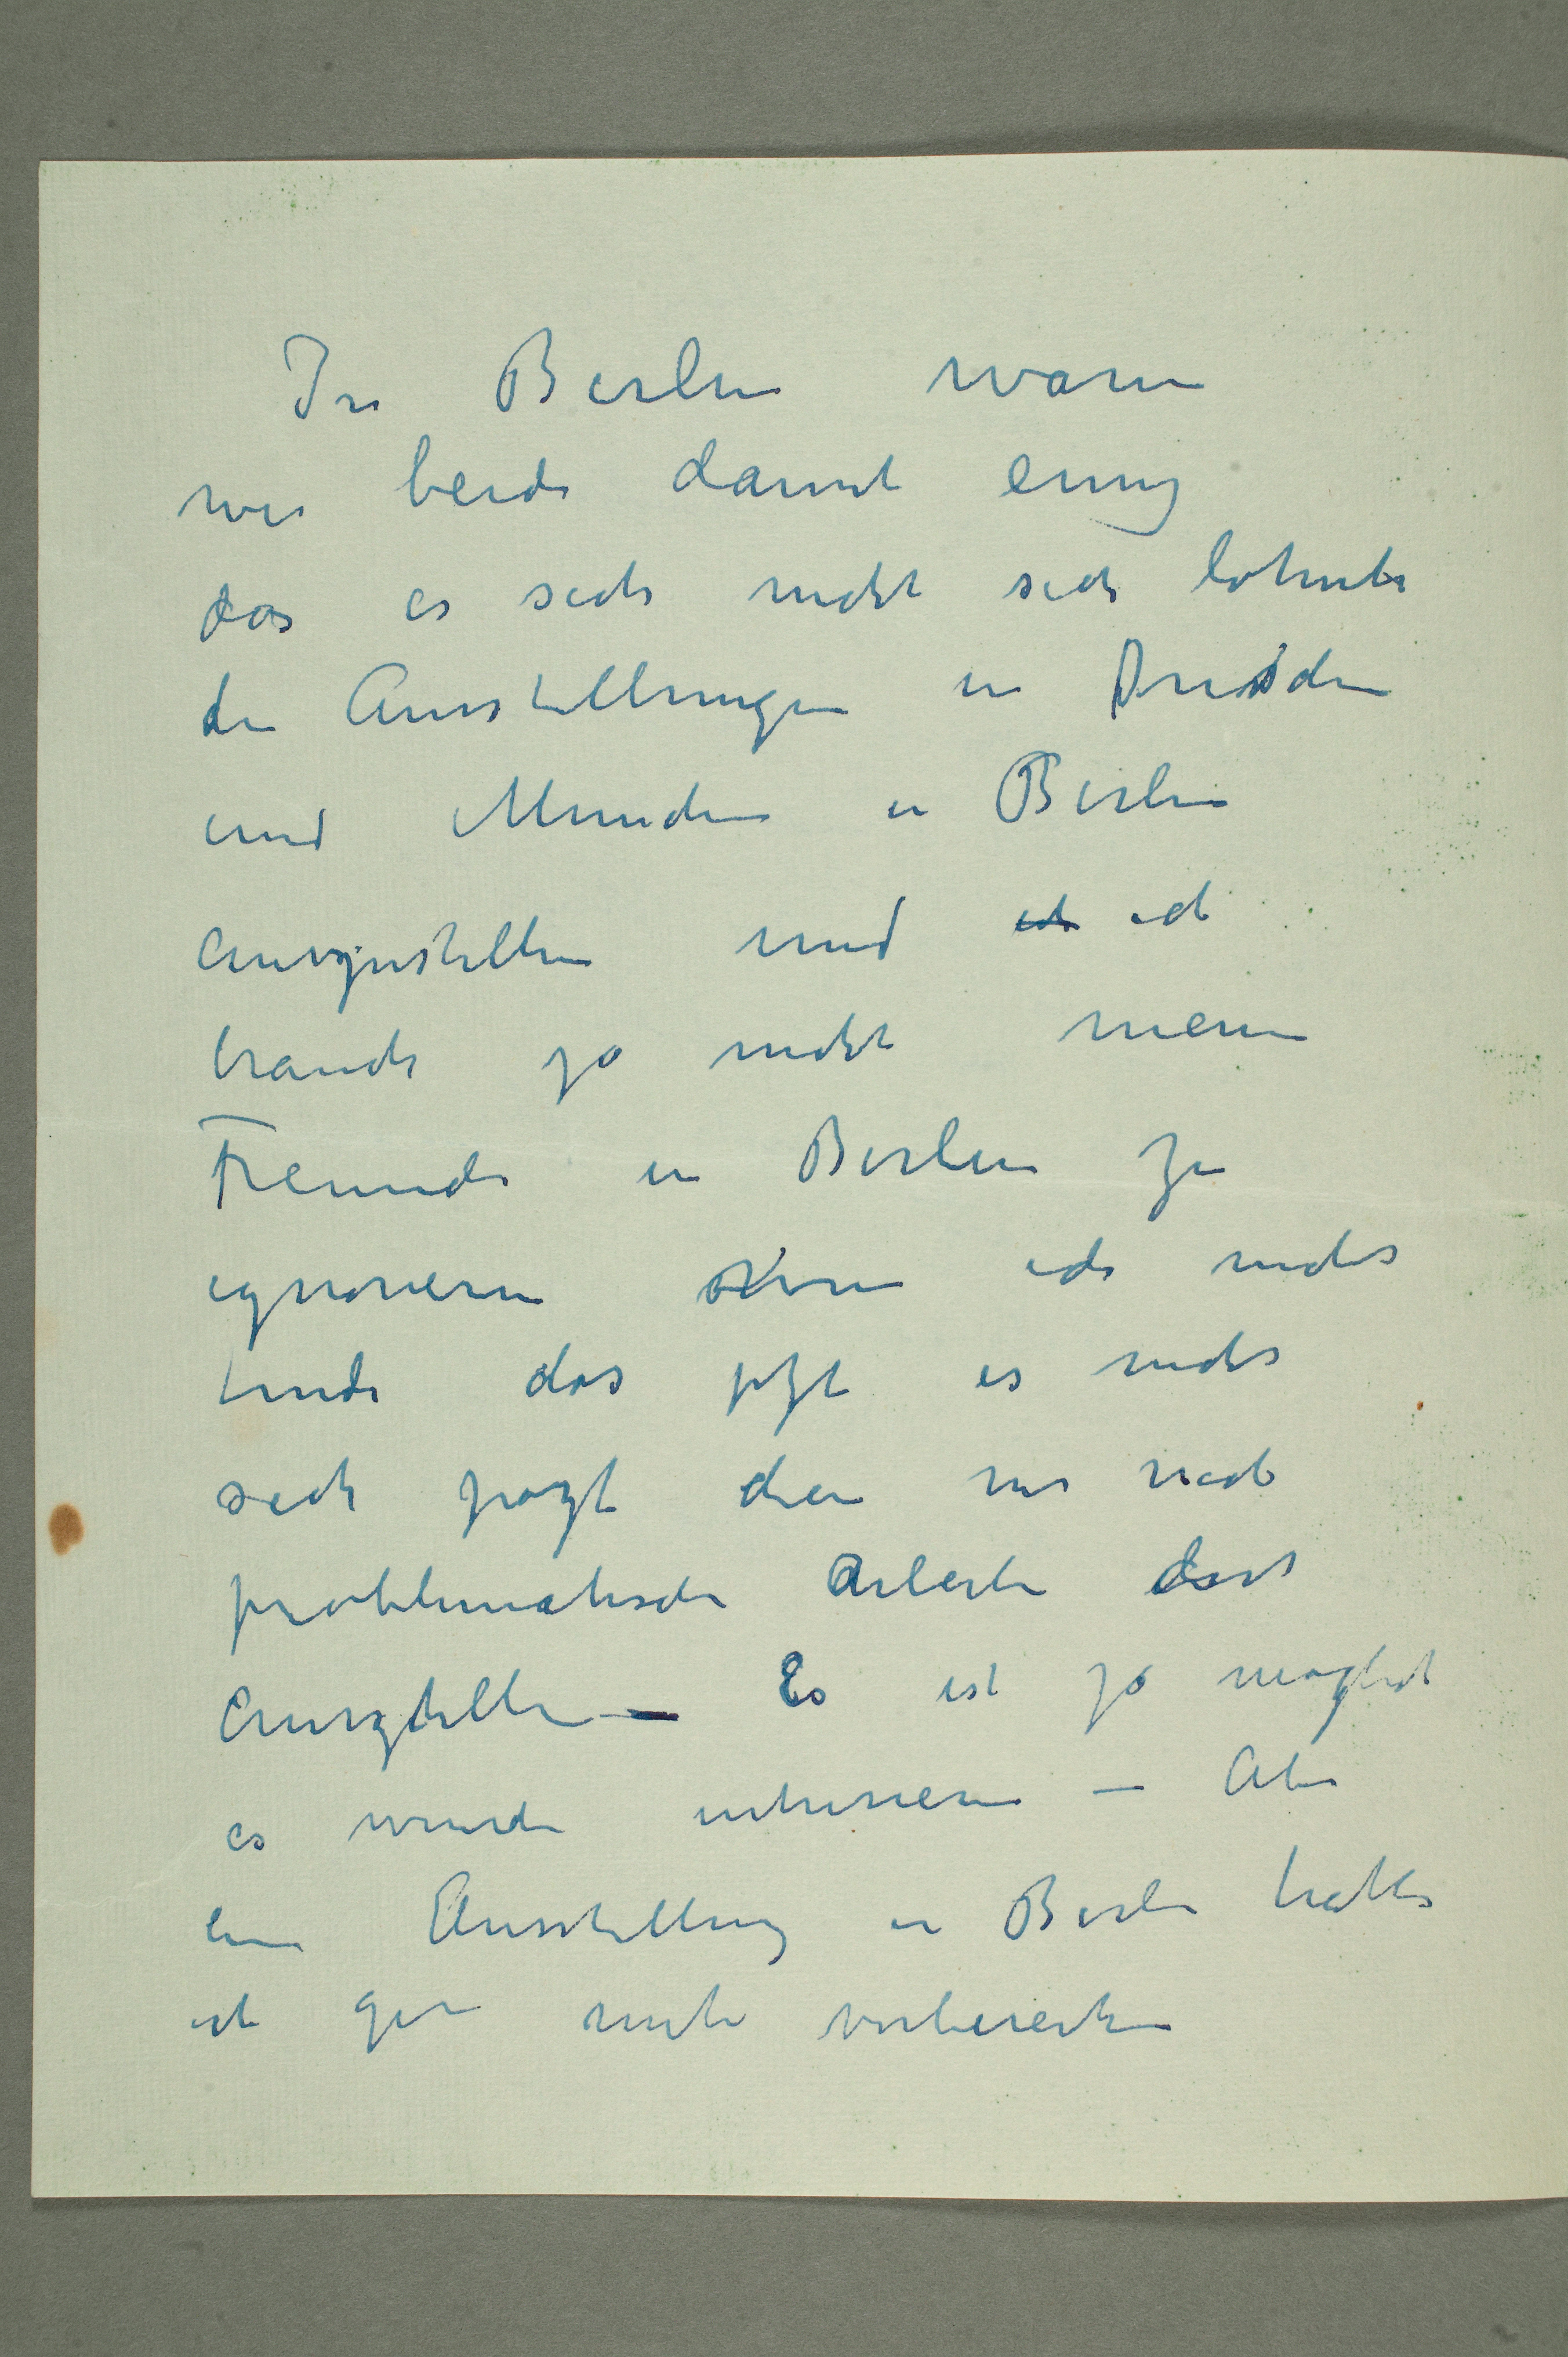 In Berlin waren
wir beide damit einig
das es sich nicht sich lohnte
die Ausstellungen in Dresden
und Munchen in Berlin
auszustellen und ich ich
brauche ja nicht meine
Freunde in Berlin zu
ignorieren wenn ich nicht
finde das jetzt es nicht
sich jetzt die mir nach
problematische Arbeiten dort
auszstellen – Es ist ja möglich
es wurde intresieren – Aber
eine Ausstellung in Berlin hatte
ich gern mit vorbereiten